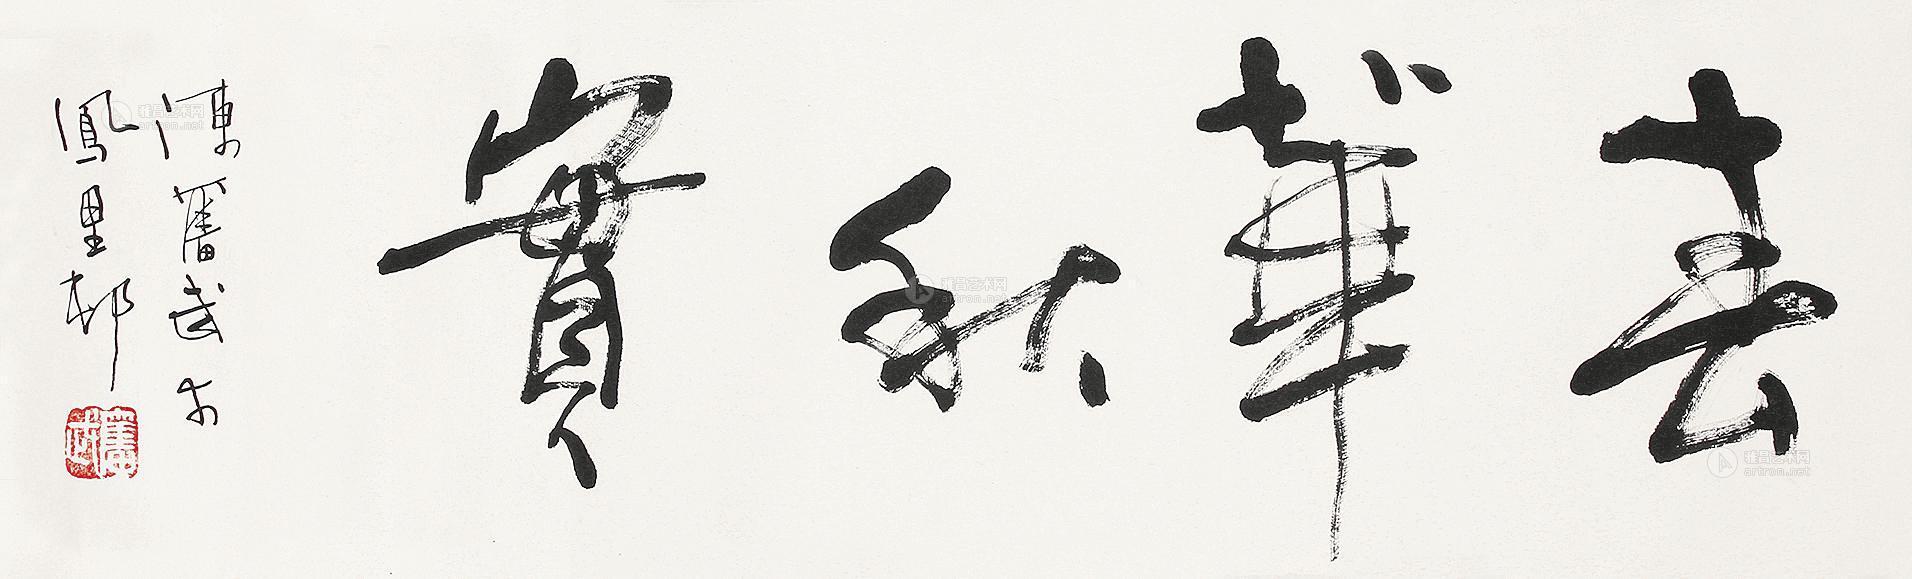 春華秋實
陳奮武於
鳳里邨
奮武
雅昌艺术网
artron.net
雅昌艺术网
artron.net
雅昌艺术网
artron.net